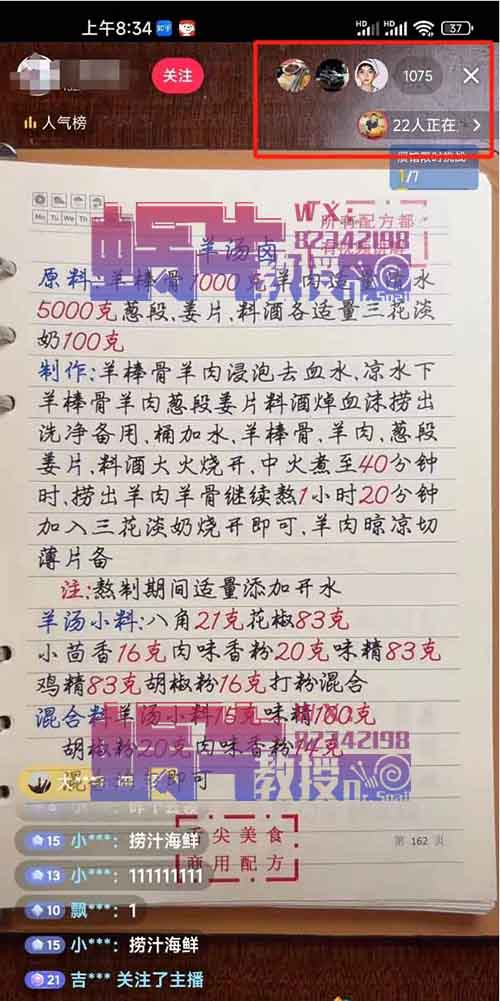 上午8:34
HD
HD
37
关注
1075
人气榜
22人正在
1/7
Mo Tu We Th
WX:
82342198
蜗牛
教授
Mr.Snail
所有配方都
羊汤卤
原料:羊棒骨1000克羊肉适量清水
5000克葱段、姜片、料酒各适量三花淡
奶100克
制作:羊棒骨羊肉浸泡去血水、凉水下
羊棒骨羊肉葱段姜片料酒焯血沫捞出
洗净备用、桶加水、羊棒骨、羊肉、葱段
姜片、料酒大火烧开、中火煮至40分钟
时、捞出羊肉羊骨继续熬1小时20分钟
加入三花淡奶烧开即可、羊肉晾凉切
薄片备
注:熬制期间适量添加开水
羊汤小料:八角21克花椒83克
小茴香16克肉味香粉20克味精83克
鸡精83克胡椒粉16克打粉混合
混合料羊汤小料15克味精180克
胡椒粉20克肉味香粉14克
即可
蜗牛
82342198
教授
Mr.Snail
舌尖美食
商用配方
第 162 页
15 小***: 捞汁海鲜
13 小***: 111111111
10 飘***: 1
15 小***: 捞汁海鲜
21 吉*** 关注了主播